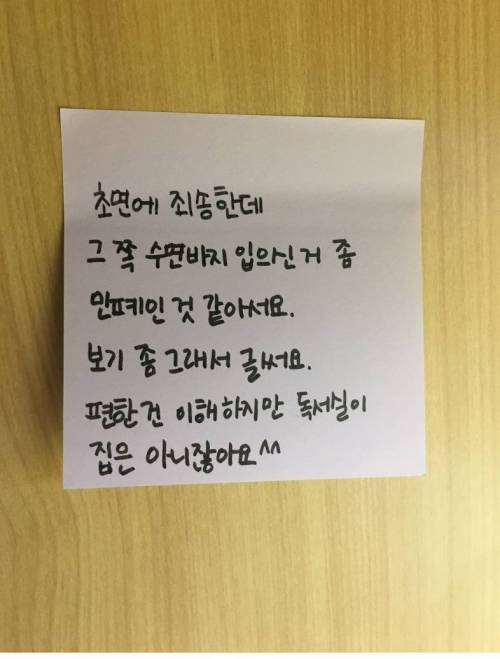 초면에 죄송한데
그 쪽 수면바지 입으신 거 좀
민폐인 것 같아서요.
보기 좀 그래서 글써요.
편한 건 이해하지만 독서실이
집은 아니잖아요^^